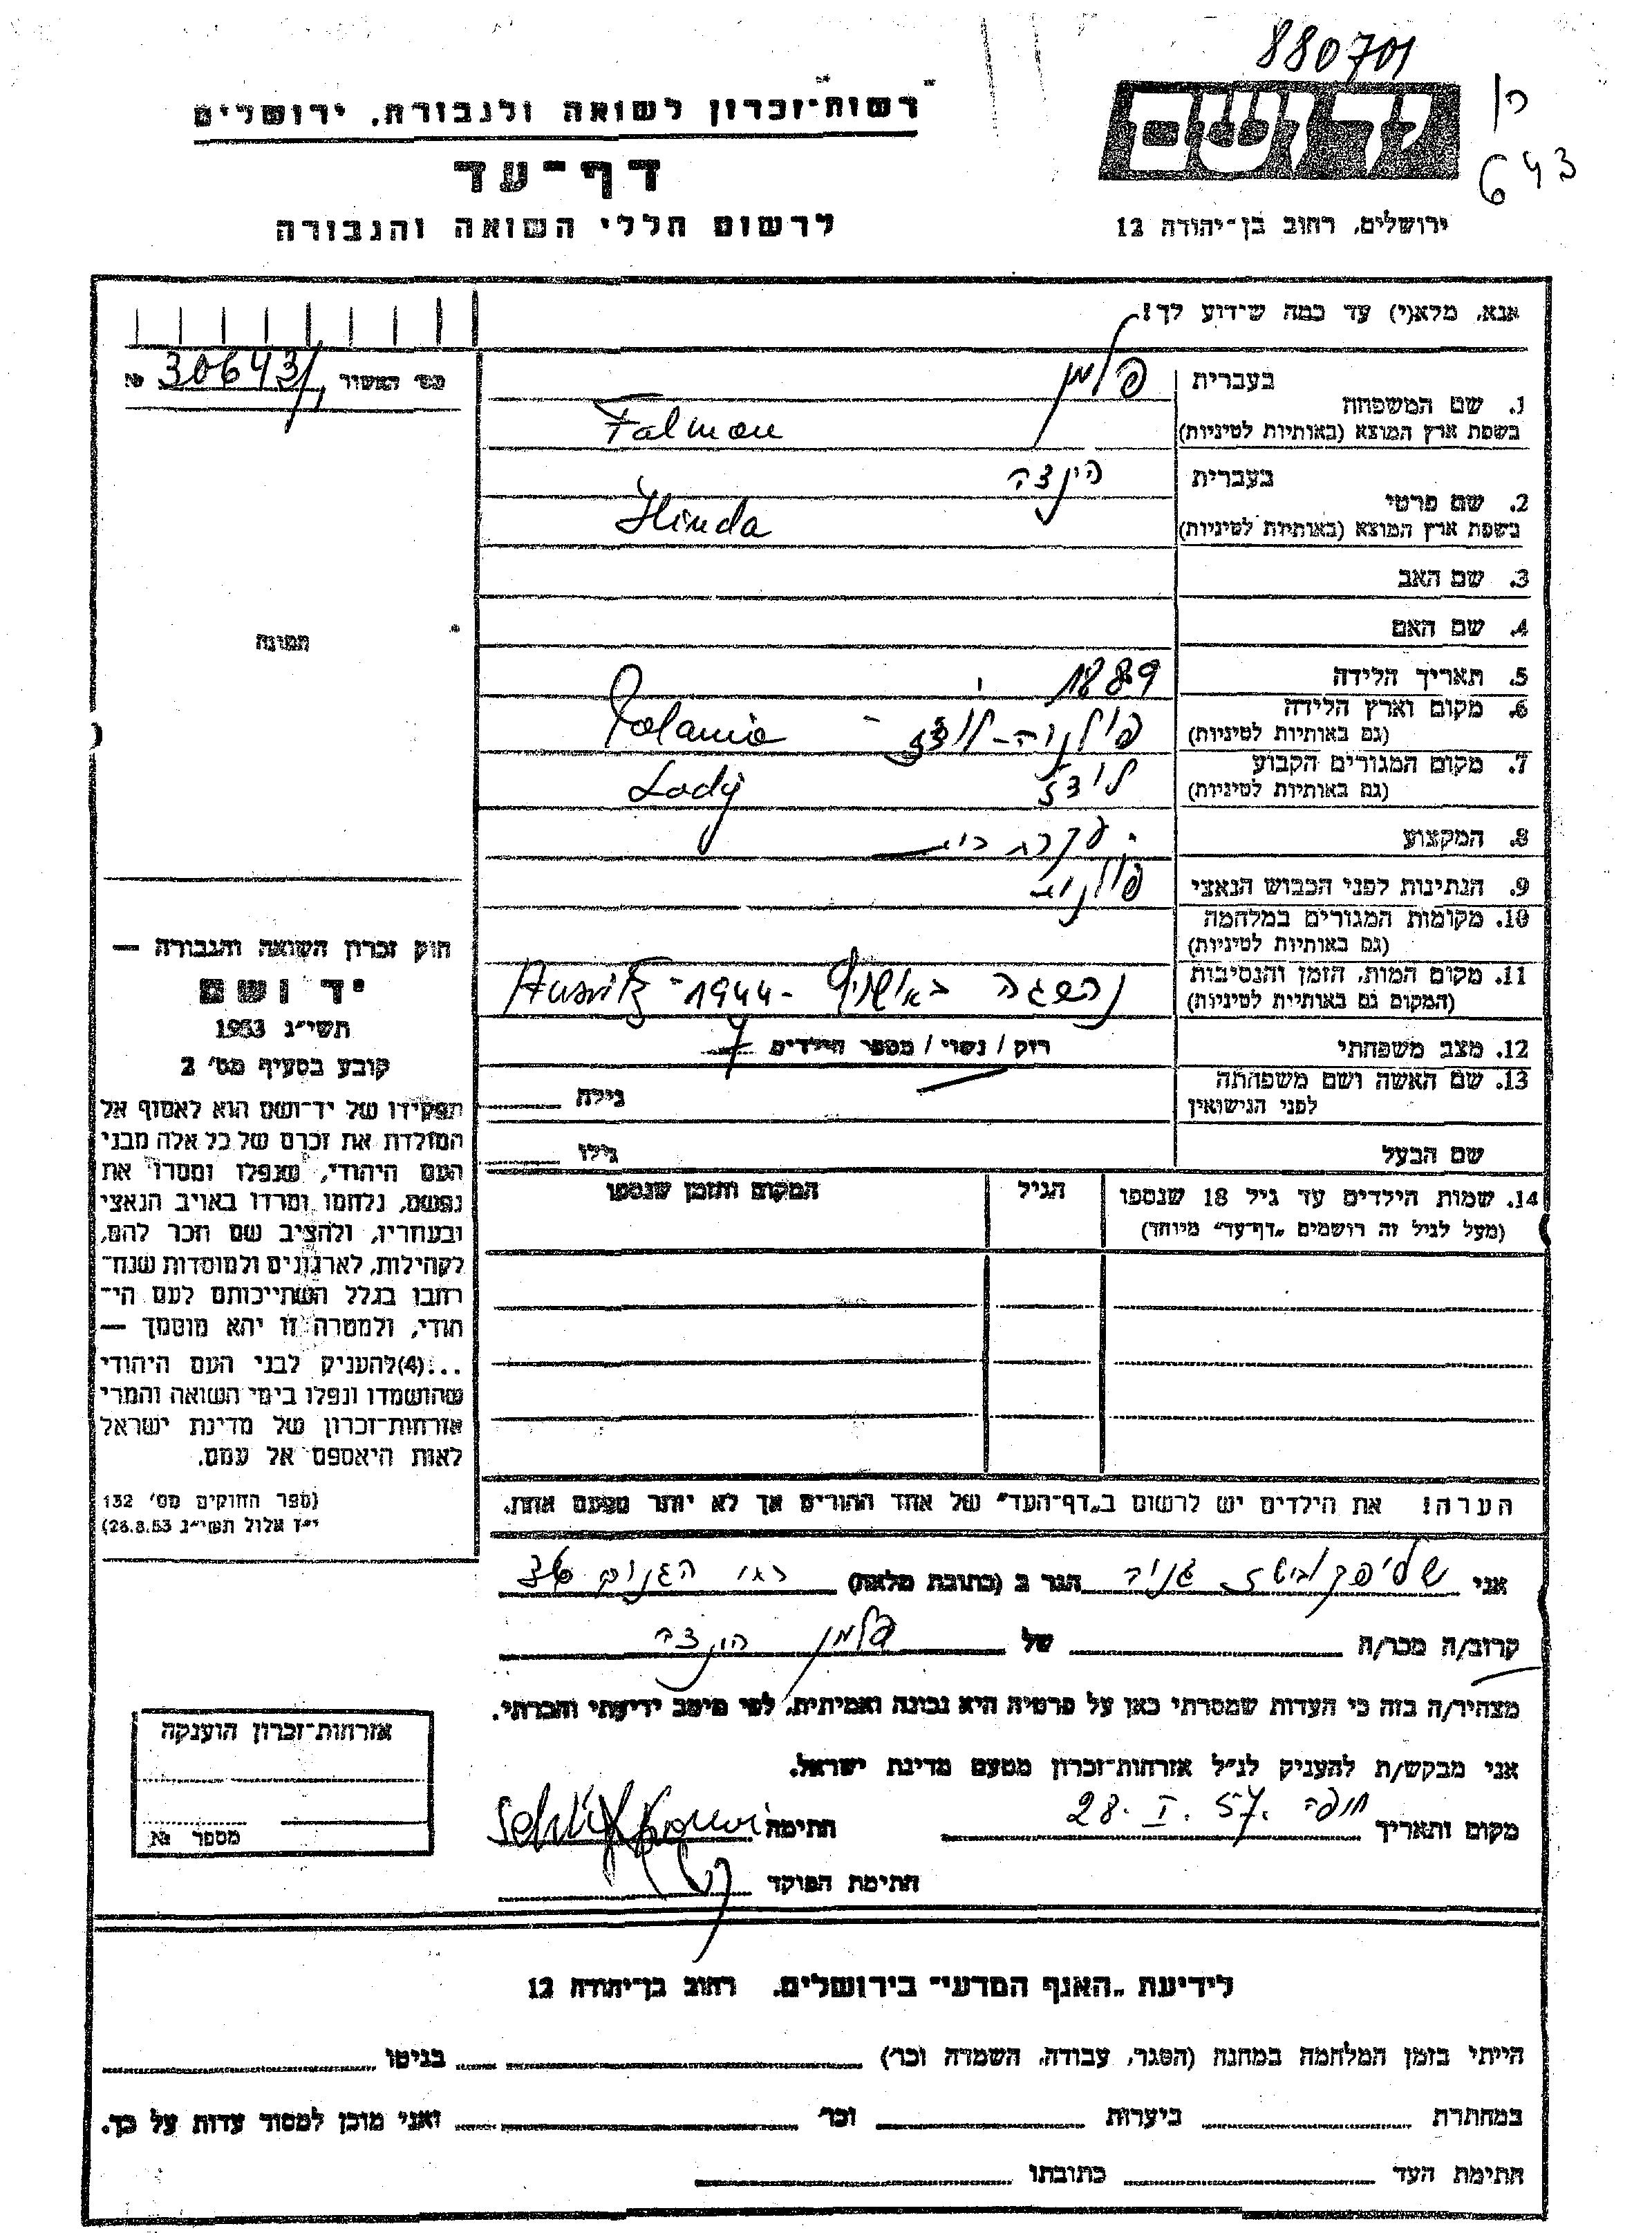 880701
רשות־זכרון לשואה ולגבורה, ירושלים
ידושם
דף־עד
643
לרשום חללי השואה והגבורה
ירושלים, רחוב בן־יהודה 12
אנא, מלא(י) עד כמה שידוע לך!
מס׳ האשור № 30643/
1. שם המשפחה
בעברית פלמן
בשפת ארץ המוצא (באותיות לטיניות) Falman
2. שם פרטי
בעברית הינדה
בשפת ארץ המוצא (באותיות לטיניות) Hinda
3. שם האב
4. שם האם
תמונה
5. תאריך הלידה 1889
6. מקום וארץ הלידה
(גם באותיות לטיניות) פולניה-לודז Polania
7. מקום המגורים הקבוע
(גם באותיות לטיניות) לודז Lodz
8. המקצוע עקרת בית
9. הנתינות לפני הכבוש הנאצי פולנית
10. מקומות המגורים במלחמה
(גם באותיות לטיניות)
11. מקום המות, הזמן והנסיבות
(המקום גם באותיות לטיניות) 1944 -
12. מצב משפחתי רוק / נשוי / מספר הילדים
13. שם האשה ושם משפחתה
לפני הנישואין גילה
שם הבעל גילו
14. שמות הילדים עד גיל 18 שנספו
(מעל לגיל זה רושמים „דף־עד" מיוחד)
הגיל
המקום והזמן שנספו
הערה! את הילדים יש לרשום ב„דף־העד" של אחד ההורים אך לא יותר מפעם אחת.
חוק זכרון השואה והגבורה —
יד ושם
תשי״ג 1953
קובע בסעיף מס׳ 2
תפקידו של יד־ושם הוא לאסוף אל
המולדת את זכרם של כל אלה מבני
העם היהודי, שנפלו ומסרו את
נפשם, נלחמו ומרדו באויב הנאצי
ובעוזריו, ולהציב שם וזכר להם,
לקהילות, לארגונים ולמוסדות שנח־
רחבו בגלל השתייכותם לעם הי־
הודי, ולמטרה זו יהא מוסמך —
...(4) להעניק לבני העם היהודי
שהושמדו ונפלו בימי השואה והמרי
אזרחות־זכרון של מדינת ישראל
לאות היאספם אל עמם.
(ספר החוקים מס׳ 132
י״ז אלול תשי״ג 26.8.53)
אני הגר ב (כתובת מלאה)
קרוב/ה מכר/ה של פלמן הינדה
מצהיר/ה בזה כי העדות שמסרתי כאן על פרטיה היא נכונה ואמיתית, לפי מיטב ידיעתי והכרתי.
אני מבקש/ת להעניק לנ״ל אזרחות־זכרון מטעם מדינת ישראל.
מקום ותאריך חיפה 28. I. 57. חתימה
חתימת הפוקד
אזרחות־זכרון הוענקה
מספר №
לידיעת „האגף המדעי" בירושלים, רחוב בן־יהודה 12
הייתי בזמן המלחמה במחנה (הסגר, עבודה, השמדה וכר׳) בגיטו
במחתרת ביערות וכר׳ ואני מוכן למסור עדות על כך.
חתימת העד כתובתו